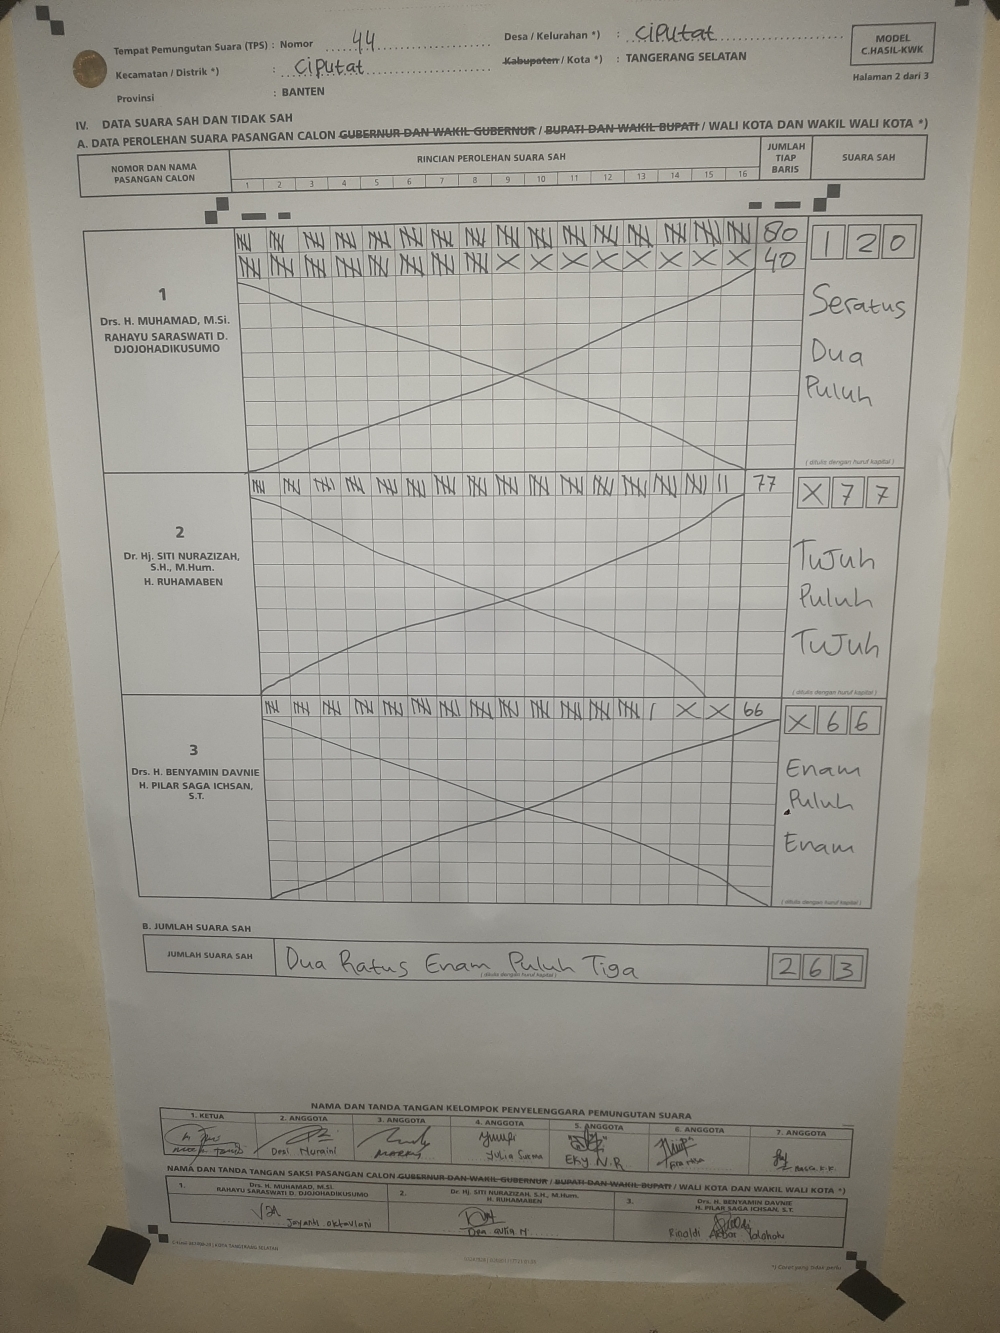 Tempat Pemungutan Suara (TPS) : Nomor 44 Desa / Kelurahan *) : Ciputat
MODEL
C.HASIL-KWK
Kecamatan / Distrik *) : Ciputat Kabupaten / Kota *) : TANGERANG SELATAN
Halaman 2 dari 3
Provinsi : BANTEN
IV. DATA SUARA SAH DAN TIDAK SAH
A. DATA PEROLEHAN SUARA PASANGAN CALON GUBERNUR DAN WAKIL GUBERNUR / BUPATI DAN WAKIL BUPATI / WALI KOTA DAN WAKIL WALI KOTA *)
NOMOR DAN NAMA
PASANGAN CALON
RINCIAN PEROLEHAN SUARA SAH
1 2 3 4 5 6 7 8 9 10 11 12 13 14 15 16
JUMLAH
TIAP
BARIS
SUARA SAH
1
Drs. H. MUHAMAD, M.Si.
RAHAYU SARASWATI D.
DJOJOHADIKUSUMO
80
X X X X X X X X 40
1 2 0
Seratus
Dua
Puluh
( ditulis dengan huruf kapital )
2
Dr. Hj. SITI NURAZIZAH,
S.H., M.Hum.
H. RUHAMABEN
77
X 7 7
Tujuh
Puluh
Tujuh
( ditulis dengan huruf kapital )
3
Drs. H. BENYAMIN DAVNIE
H. PILAR SAGA ICHSAN,
S.T.
X X 66
X 6 6
Enam
Puluh
Enam
( ditulis dengan huruf kapital )
B. JUMLAH SUARA SAH
JUMLAH SUARA SAH
Dua Ratus Enam Puluh Tiga
( ditulis dengan huruf kapital )
2 6 3
NAMA DAN TANDA TANGAN KELOMPOK PENYELENGGARA PEMUNGUTAN SUARA
1. KETUA 2. ANGGOTA 3. ANGGOTA 4. ANGGOTA 5. ANGGOTA 6. ANGGOTA 7. ANGGOTA
Desi Nuraini
EKY N.R
NAMA DAN TANDA TANGAN SAKSI PASANGAN CALON GUBERNUR DAN WAKIL GUBERNUR / BUPATI DAN WAKIL BUPATI / WALI KOTA DAN WAKIL WALI KOTA *)
1. Drs. H. MUHAMAD, M.Si.
RAHAYU SARASWATI D. DJOJOHADIKUSUMO
2. Dr. Hj. SITI NURAZIZAH, S.H., M.Hum.
H. RUHAMABEN
3. Drs. H. BENYAMIN DAVNIE
H. PILAR SAGA ICHSAN, S.T.
Rinaldi Akbar
*) Coret yang tidak perlu